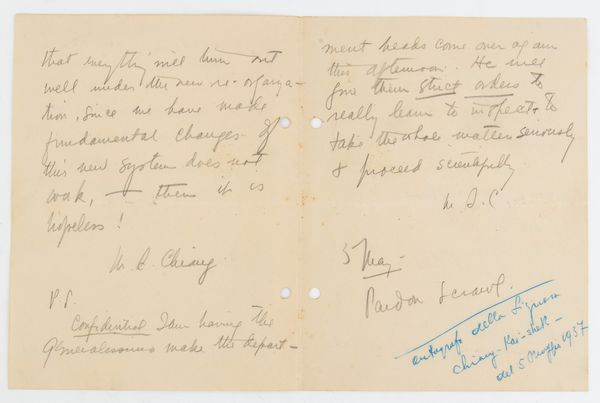 that everything will turn out
well under the new re-organiza-
tion, since we have made
fundamental changes. If
this new system does not
work, — then it is
hopeless!
M. C. Chiang.
P.S.
Confidential I am having the
Generalissimo make the depart-
ment heads come over again
this afternoon. He will
give them strict orders to
really learn to inspect & to
take the whole matter seriously
& proceed scientifically
M. S. C
5 May.
Pardon scrawl.
autografo della Signora
Chiang-Kai-shek —
del 5 Maggio 1937